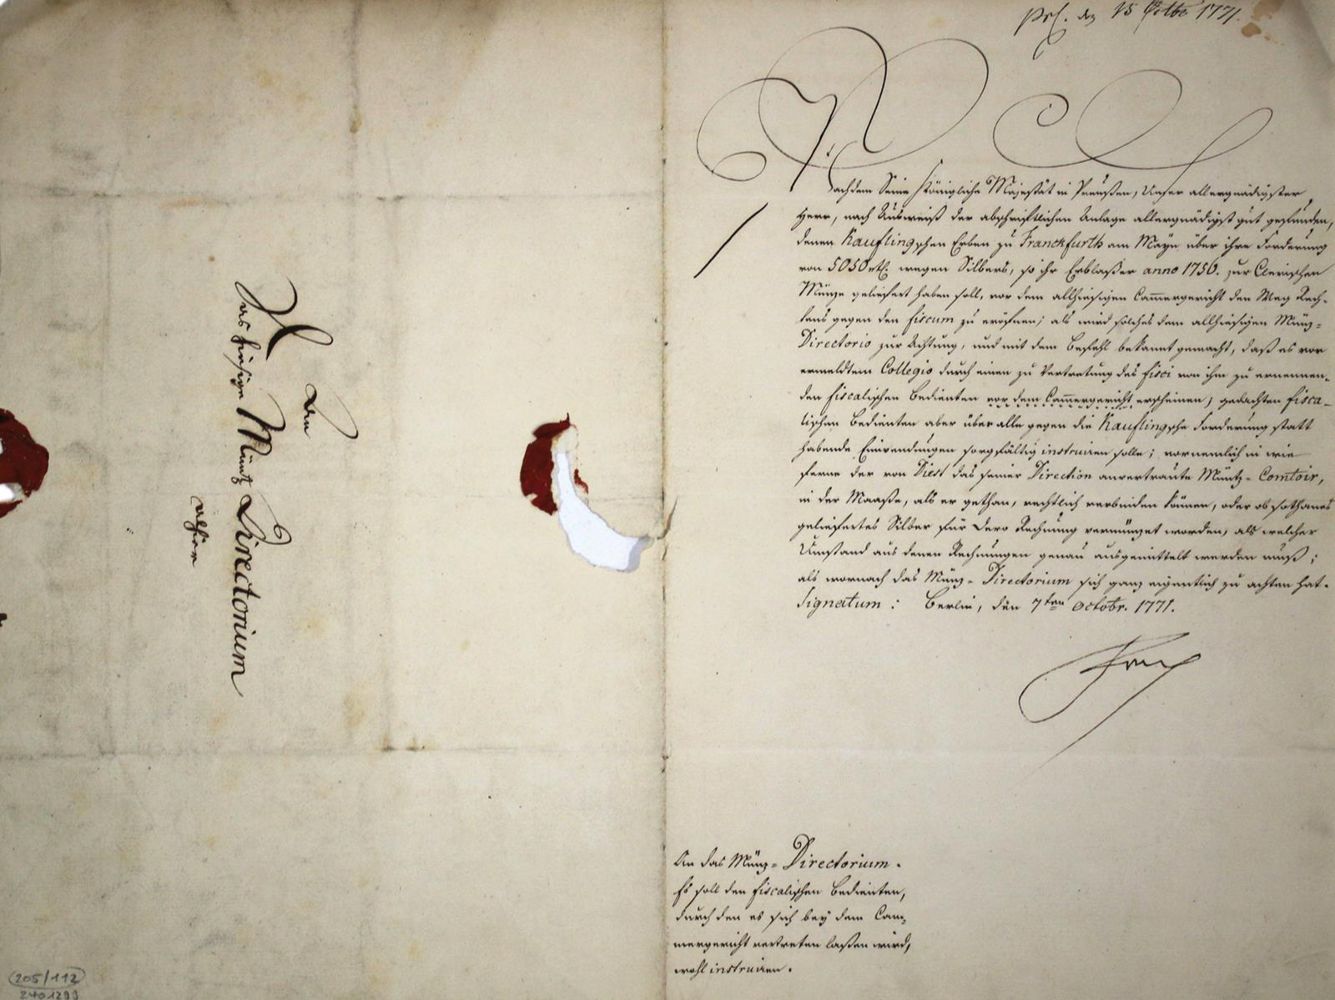 An
Das hiesige Müntz Directorium
alhier
205/112
psf. den 15 Octbr 1771.
Nachdem Seine Königliche Majestät in Preußen, Unser allergnädigster
Herr, nach Ausweiß der abschriftlichen Anlage allergnädigst gut gefunden,
denen Kauflingschen Erben zu Franckfurth am Mayn über ihre Forderung
von 5050 rtl. wegen Silbers, so ihr Erblaßer anno 1756. zur Clevischen
Münze geliefert haben soll, vor dem allhiesigen Cammergericht den Weg Rech-
tens gegen den fiscum zu eröfnen; als wird solches dem allhiesigen Münz-
Directorio zur Achtung, und mit dem Befehl bekannt gemacht, daß es vor
ermeldtem Collegio durch einen zu Vertretung des fisci von ihm zu ernennen-
den fiscalischen Bedienten vor dem Cammergericht erscheinen, gedachten fisca-
lischen Bedienten aber über alle gegen die Kauflingsche Forderung statt
habende Einwendungen sorgfältig instruiren solle; vornemlich in wie
ferne der von Diest das seiner Direction anvertraute Müntz-Comtoir,
in der Maaße, als er gethan, rechtlich verbinden können, oder ob sothanes
geliefertes Silber für Dero Rechnung vermünzet worden, als welcher
Umstand aus denen Rechnungen genau ausgemittelt werden muß;
als wornach das Münz-Directorium sich ganz eigentlich zu achten hat.
Signatum: Berlin, den 7ten Octobr. 1771.
An das Münz-Directorium.
Es soll den fiscalischen Bedienten,
durch den es sich bey dem Cam-
mergericht vertreten laßen wird,
wohl instruiren.